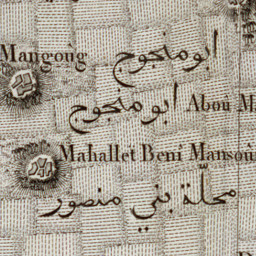 Mangoug
ابو منجوج
ابو منجوج Abou M
Mahallet Beni Mansoû
محلّة بني منصور